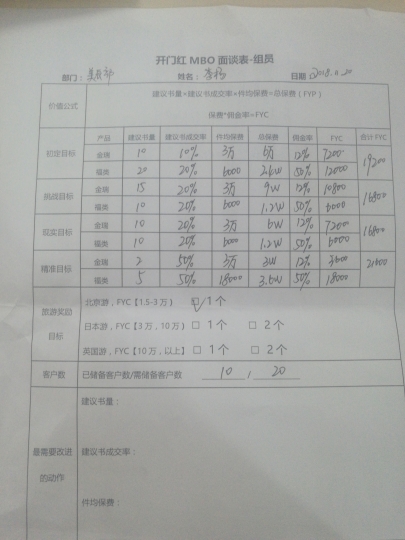 开门红 MBO 面谈表-组员
部门： 姓名： 日期 2018.11.20
价值公式
建议书量×建议书成交率×件均保费=总保费（FYP）
保费*佣金率=FYC
产品 建议书量 建议书成交率 件均保费 总保费 佣金率 FYC 合计FYC
初定目标
金瑞 10 10% 3万 6万 12% 7200 19200
福类 20 20% 6000 2.4W 50% 12000
挑战目标
金瑞 15 20% 3万 9W 12% 10800 16800
福类 10 20% 6000 1.2W 50% 6000
现实目标
金瑞 10 20% 3万 6W 12% 7200 16800
福类 10 20% 6000 1.2W 50% 6000
精准目标
金瑞 2 50% 3万 3W 12% 3600 21600
福类 5 50% 18000 3.6W 50% 18000
旅游奖励目标
北京游，FYC【1.5-3万】 ☑ 1个
日本游，FYC【3万，10万】 □ 1个 □ 2个
英国游，FYC【10万，以上】 □ 1个 □ 2个
客户数 已储备客户数/需储备客户数 10 / 20
建议书量：
最需要改进的动作
建议书成交率：
件均保费：